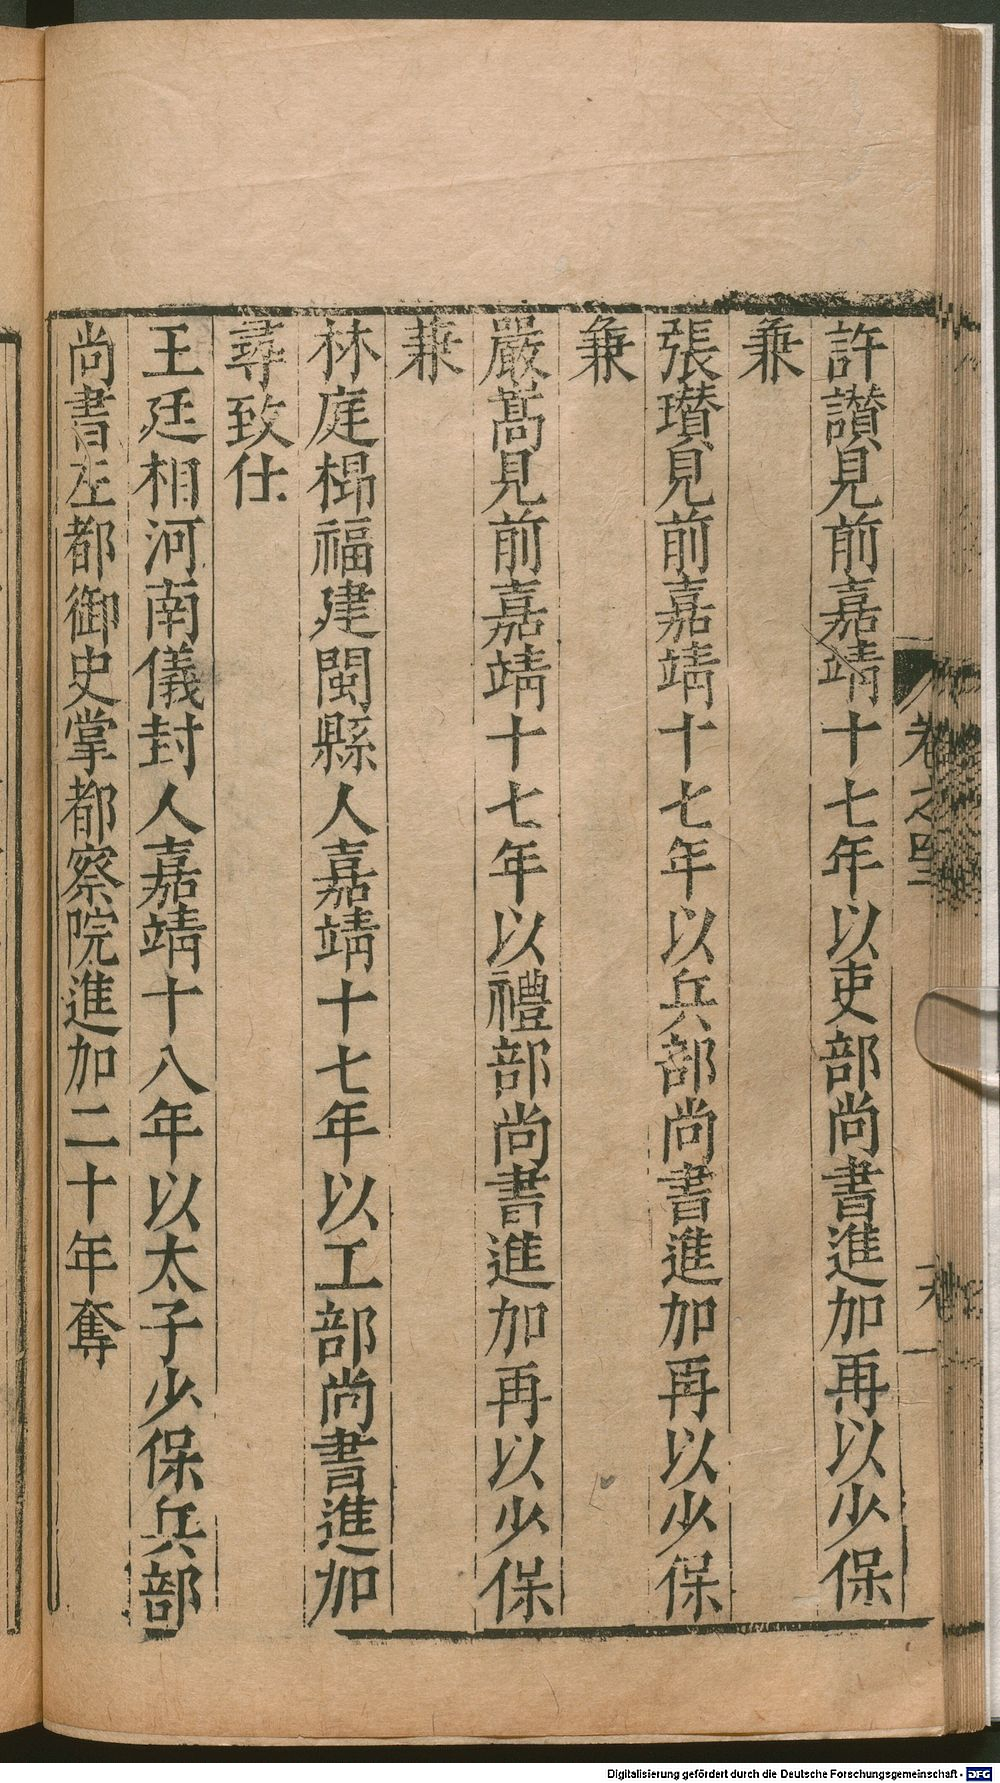 卷之四
許讃見前嘉靖十七年以吏部尚書進加再以少保
兼
張瓚見前嘉靖十七年以兵部尚書進加再以少保
兼
嚴嵩見前嘉靖十七年以禮部尚書進加再以少保
兼
林庭㭿福建閩縣人嘉靖十七年以工部尚書進加
尋致仕
王廷相河南儀封人嘉靖十八年以太子少保兵部
尚書左都御史掌都察院進加二十年奪
Digitalisierung gefördert durch die Deutsche Forschungsgemeinschaft - DFG